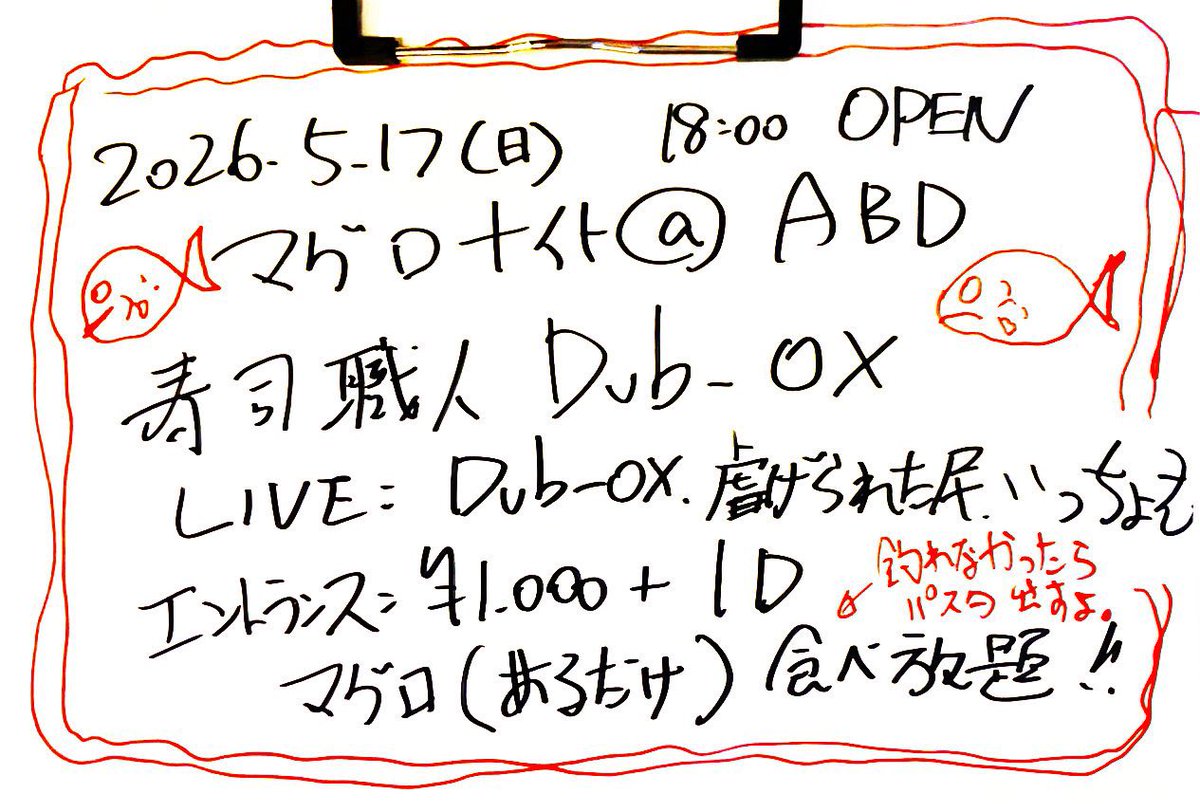 2026.5.17(日) 18:00 OPEN
マグロナイト@ABD
寿司職人 Dub-OX
LIVE: Dub-OX. 虐げられた尻. いっちょえ
エントランス:¥1.000+1D
釣れなかったら
パスタ出すよ。
マグロ(あるだけ)食べ放題!!